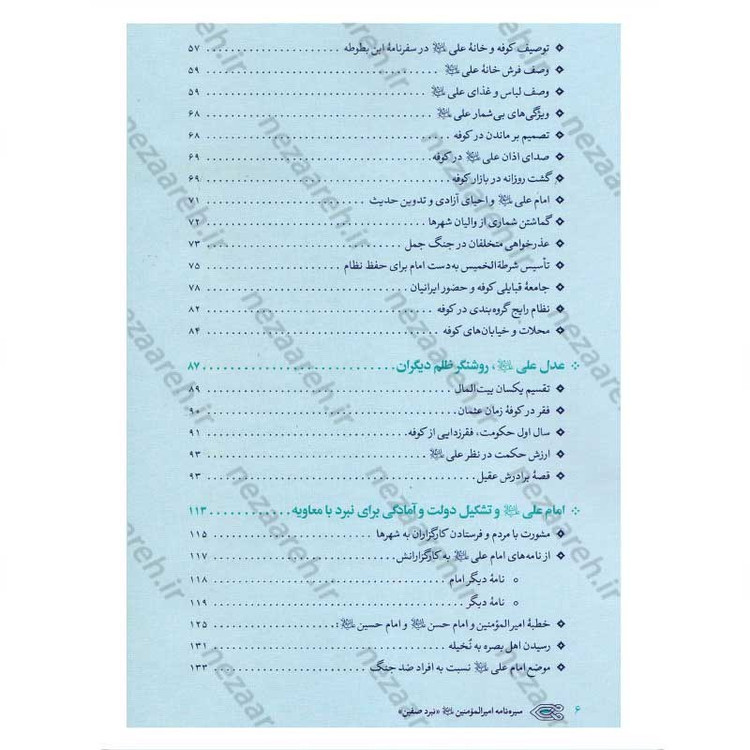 توصیف کوفه و خانهٔ علی علیه‌السلام در سفرنامهٔ ابن بطوطه ۵۷
وصف فرش خانهٔ علی علیه‌السلام ۵۹
وصف لباس و غذای علی علیه‌السلام ۵۹
ویژگی‌های بی‌شمار علی علیه‌السلام ۶۸
تصمیم بر ماندن در کوفه ۶۸
صدای اذان علی علیه‌السلام در کوفه ۶۹
گشت روزانه در بازار کوفه ۶۹
امام علی علیه‌السلام و احیای آزادی و تدوین حدیث ۷۱
گماشتن شماری از والیان شهرها ۷۲
عذرخواهی متخلفان در جنگ جمل ۷۳
تأسیس شرطةالخمیس به‌دست امام برای حفظ نظام ۷۵
جامعهٔ قبایلی کوفه و حضور ایرانیان ۷۸
نظام رایج گروه‌بندی در کوفه ۸۲
محلات و خیابان‌های کوفه ۸۴
عدل علی علیه‌السلام، روشنگر ظلم دیگران ۸۷
تقسیم یکسان بیت‌المال ۸۹
فقر در کوفهٔ زمان عثمان ۹۰
سال اول حکومت، فقرزدایی از کوفه ۹۱
ارزش حکمت در نظر علی علیه‌السلام ۹۳
قصهٔ برادرش عقیل ۹۳
امام علی علیه‌السلام و تشکیل دولت و آمادگی برای نبرد با معاویه ۱۱۳
مشورت با مردم و فرستادن کارگزاران به شهرها ۱۱۵
از نامه‌های امام علی علیه‌السلام به کارگزارانش ۱۱۷
نامهٔ دیگر امام ۱۱۸
نامهٔ دیگر ۱۱۹
خطبهٔ امیرالمؤمنین و امام حسن علیه‌السلام و امام حسین علیه‌السلام: ۱۲۵
رسیدن اهل بصره به نُخیله ۱۳۱
موضع امام علی علیه‌السلام نسبت به افراد ضد جنگ ۱۳۳
۶ سیره‌نامه امیرالمؤمنین علیه‌السلام «نبرد صفین»
nezaareh.ir